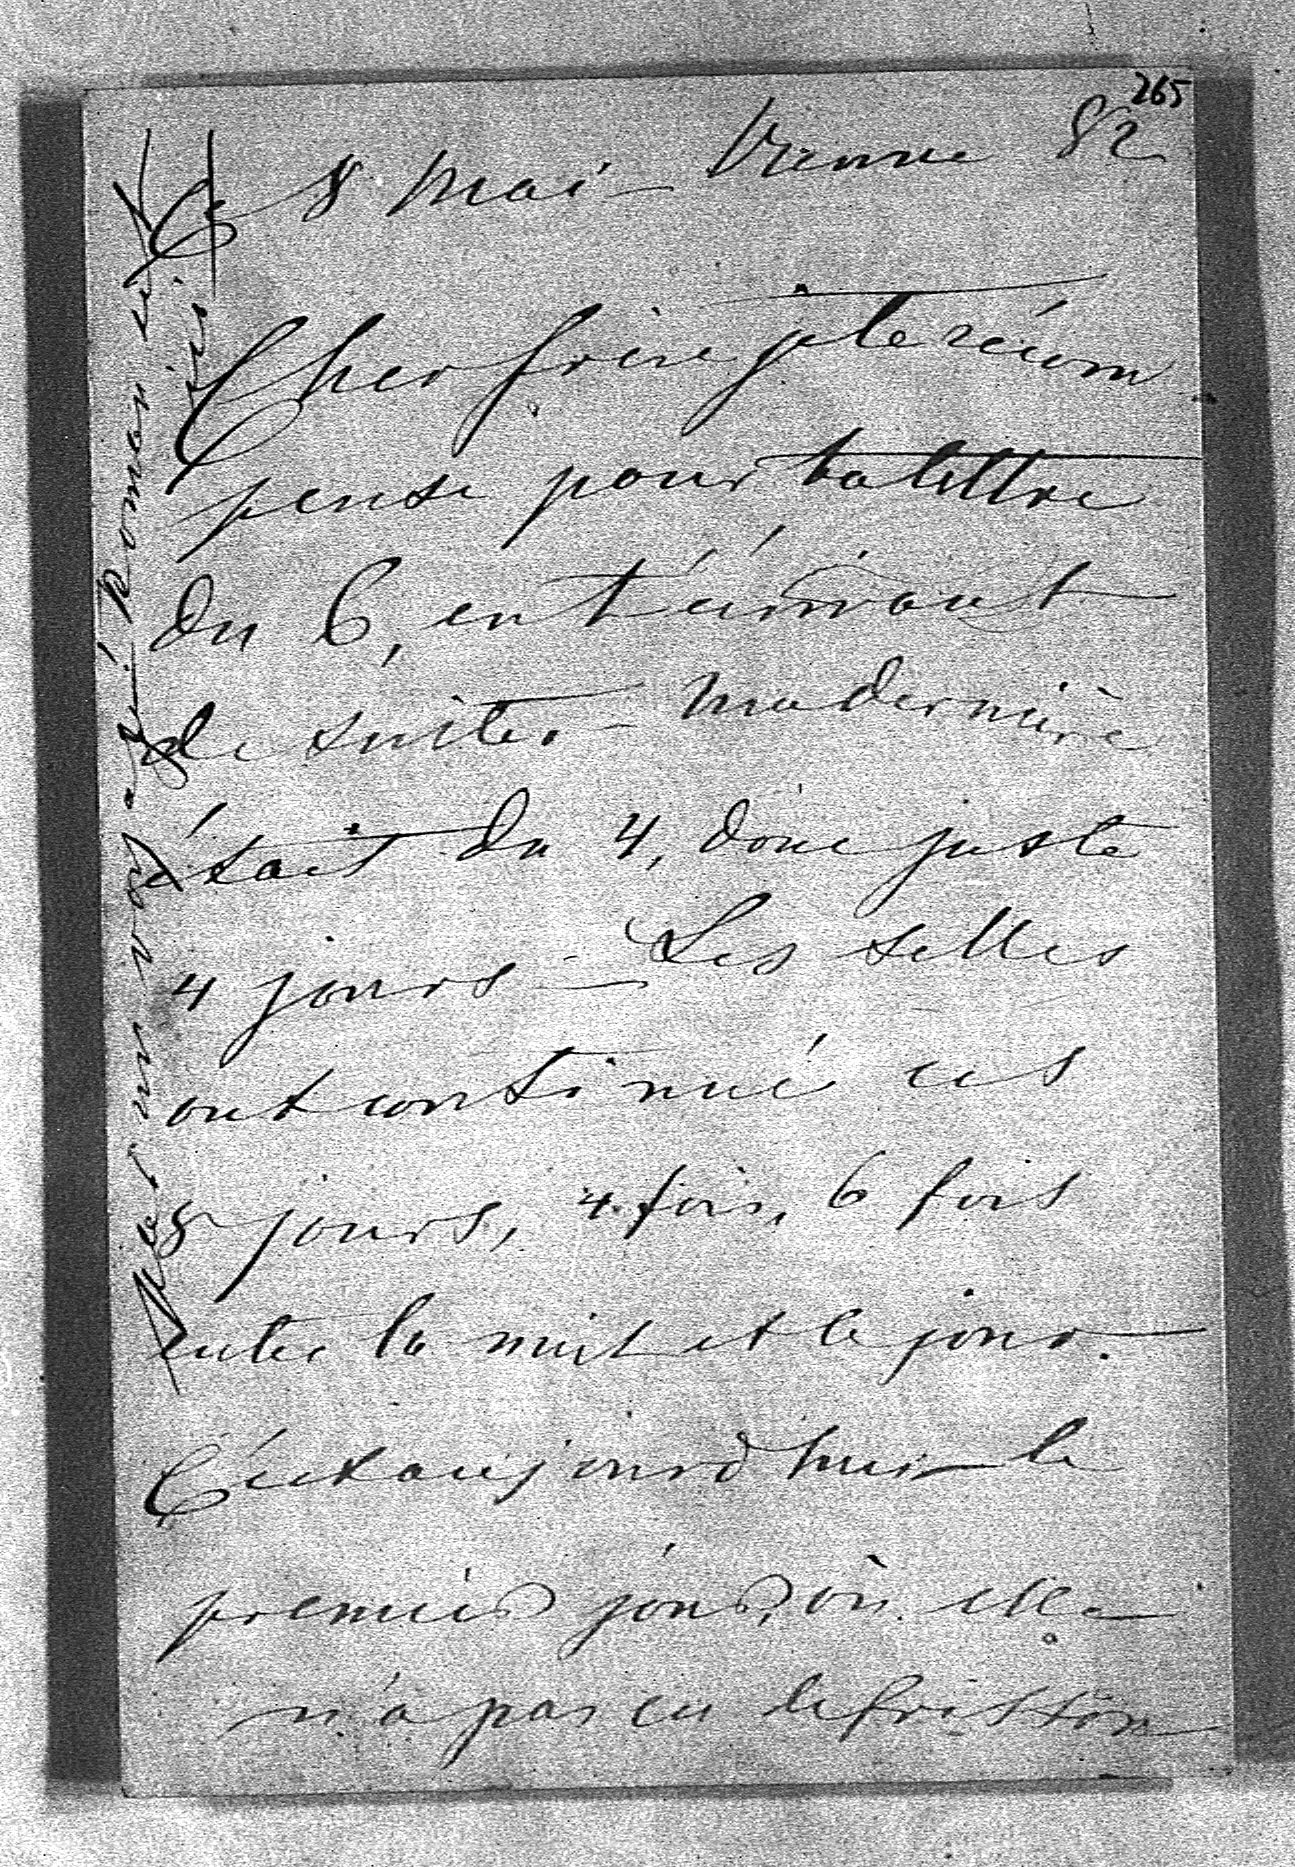 265
Ce 8 Mai – Vienne 82
Cher frère je te récom
pense pour ta lettre
du 6, en t'écrivant
de suite. – Ma dernière
était du 4, donc juste
4 jours – Les selles
ont continué ces
8 jours, 4 fois, 6 fois
entre la nuit et le jour. –
C'est aujourd'hui – le
premier jour, où elle
n'a pas eu le frisson